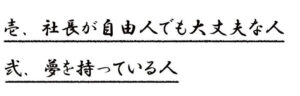 壱、社長が自由人でも大丈夫な人
弐、夢を持っている人